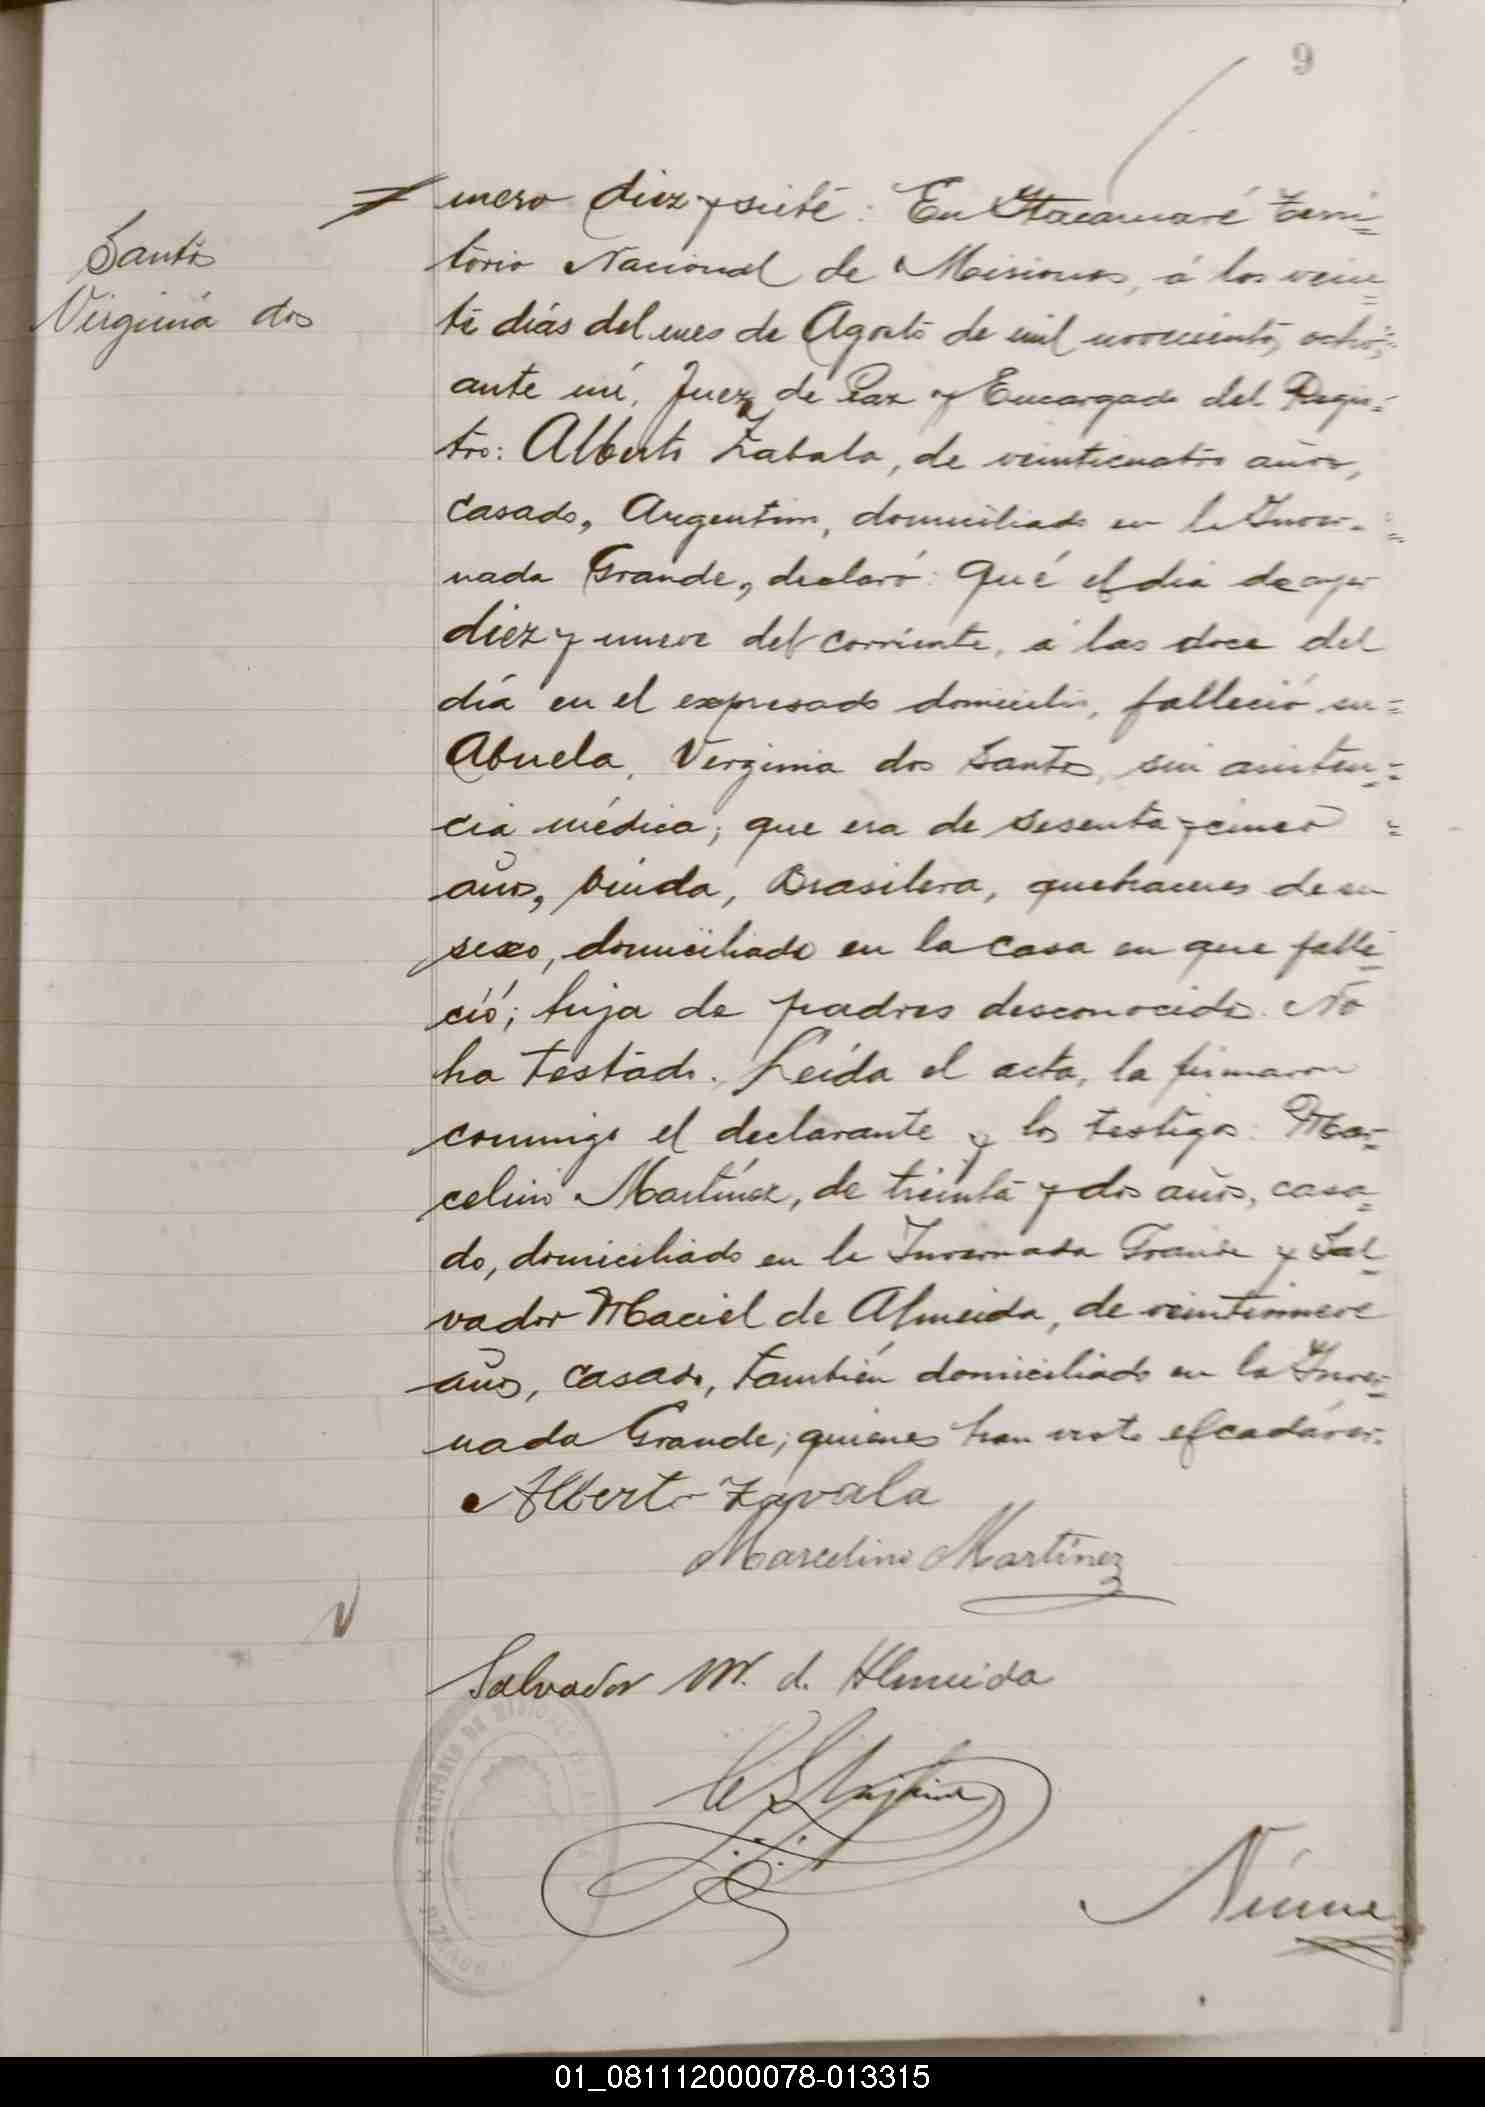 9
Santos
Virginia dos
mero diez y siete. En Itacaruaré Terri=
torio Nacional de Misiones, á los vein=
te días del mes de Agosto de mil novecientos ocho,
ante mí, Juez de Paz y Encargado del Regis=
tro: Alberto Zabala, de veinticuatro años,
casado, Argentino, domiciliado en la Inver=
nada Grande, declaró: Qué el dia de ayer
diez y nueve del corriente, á las doce del
día en el expresado domicilio, falleció su=
Abuela, Virginia dos Santos, sin asisten=
cia médica; que era de sesenta y cinco =
años, viuda, Brasilera, quehaceres de su
sexo, domiciliada en la casa en que falle=
ció; hija de padres desconocidos. No
ha testado. Leída el acta, la firmaron
conmigo el declarante y los testigos: Mar=
celino Martínez, de treinta y dos años, casa=
do, domiciliado en la Invernada Grande y Sal=
vador Maciel de Almeida, de veintinueve
años, casado, también domiciliado en la Inver=
nada Grande; quienes han visto el cadáver.
Alberto Zavala
Marcelino Martínez
Salvador M. d. Almeida
TERRITORIO DE MISIONES
Núme
01_081112000078-013315